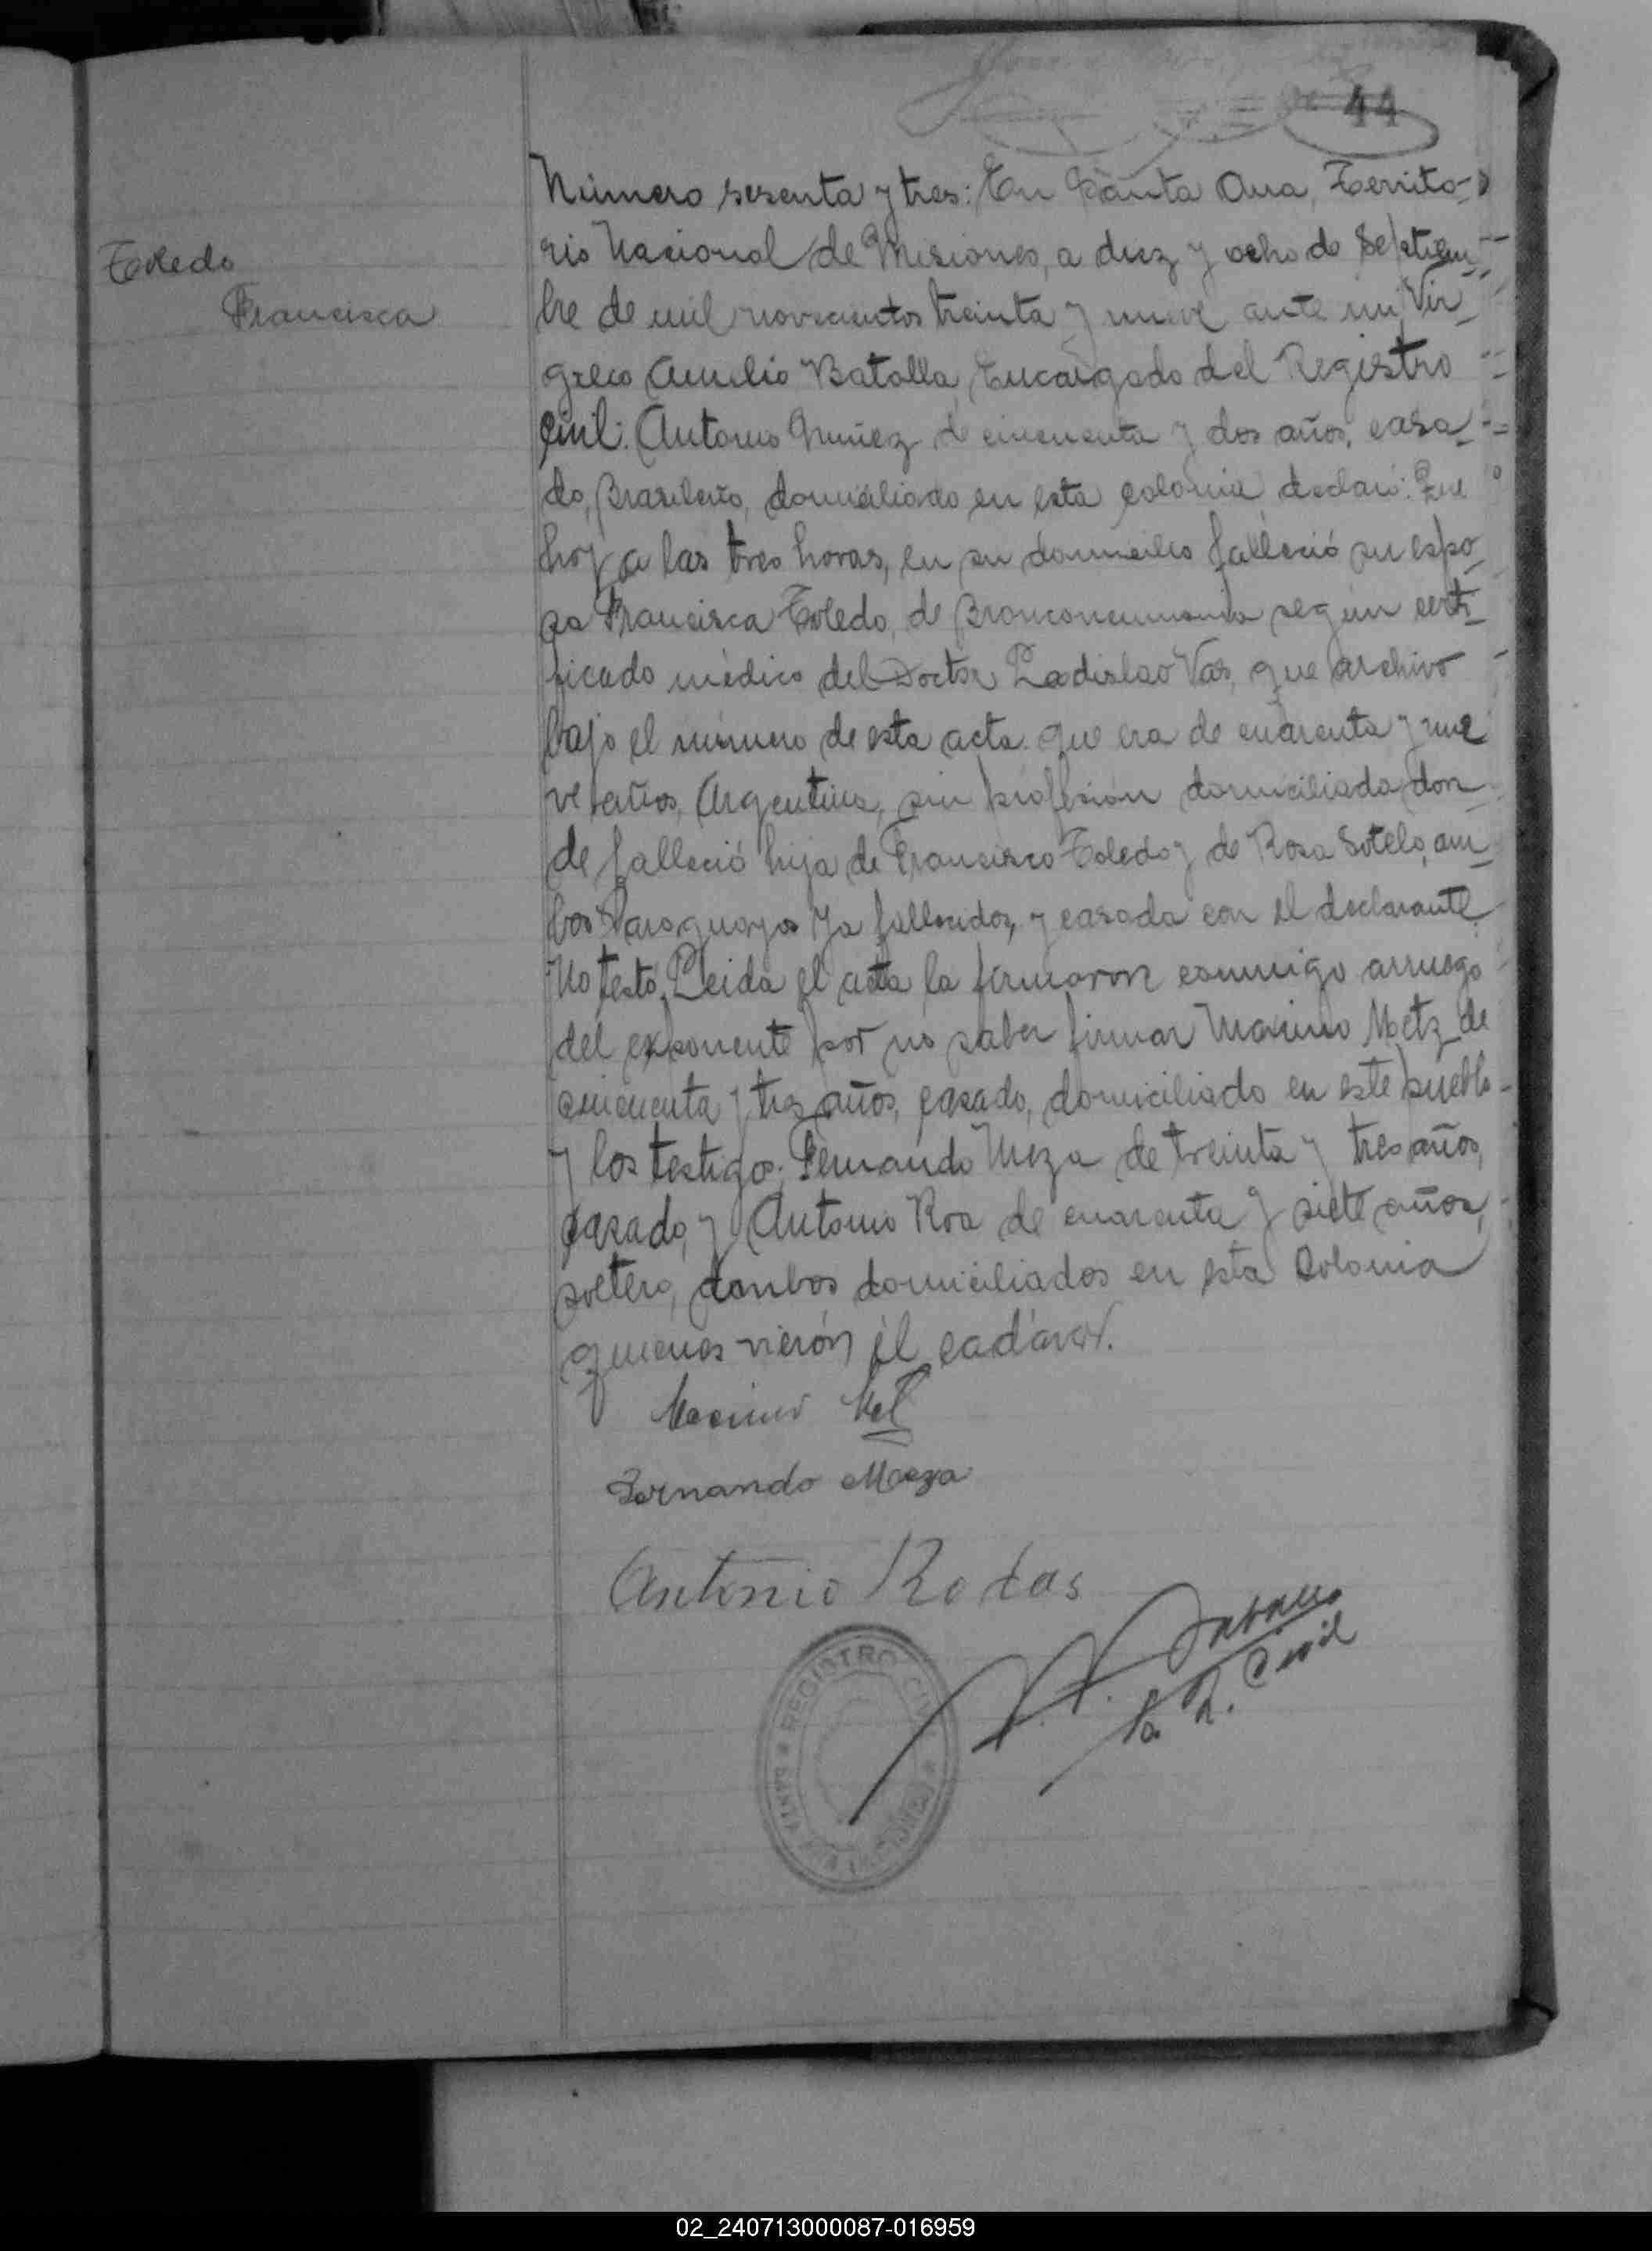 44
Toledo
Francisca
Número sesenta y tres: En Santa Ana, Territo-
rio Nacional de Misiones, a diez y ocho de Septiem-
bre de mil novecientos treinta y nueve ante mi, Vir-
gileo Aurelio Batalla, Encargado del Registro
Civil: Antonio Nuñez de cincuenta y dos años, casa-
do, Brasileño, domiciliado en esta colonia, declaró: Que
hoy a las tres horas, en su domicilio falleció su espo-
sa Francisca Toledo, de Bronconeumonia según certi-
ficado médico del Doctor Ladislao Vas, que archivo
bajo el número de esta acta. que era de cuarenta y nue
ve años, Argentina, sin profesión domiciliada don-
de falleció hija de Francisco Toledo y de Rosa Sotelo, am-
bos Paraguayos ya fallecidos, y casada con el declarante.
No testó. Leida el acta la firmaron conmigo arruego
del exponente por no saber firmar Maximo Metz de
cincuenta y tres años, casado, domiciliado en este pueblo
y los testigos: Fernando Meza de treinta y tres años,
casado, y Antonio Roa de cuarenta y siete años,
soltero, ambos domiciliados en esta Colonia
quienes vierón él cadáver.
Fernando Meza
Antonio Rodas
R. Civil
REGISTRO CIVIL
SANTA ANA (MISIONES)
02_240713000087-016959